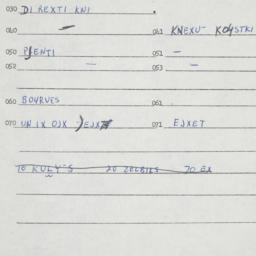 030 DI REXTI KNI
040 — 041 KNEXU- KOYSTKI
050 PJENTI 051 —
052 — 053 —
060 BOURVES 061
070 UN IX OJX -) EJXT 071 EJXET
70 KULY'S 20 ZOLBIES 70 EX